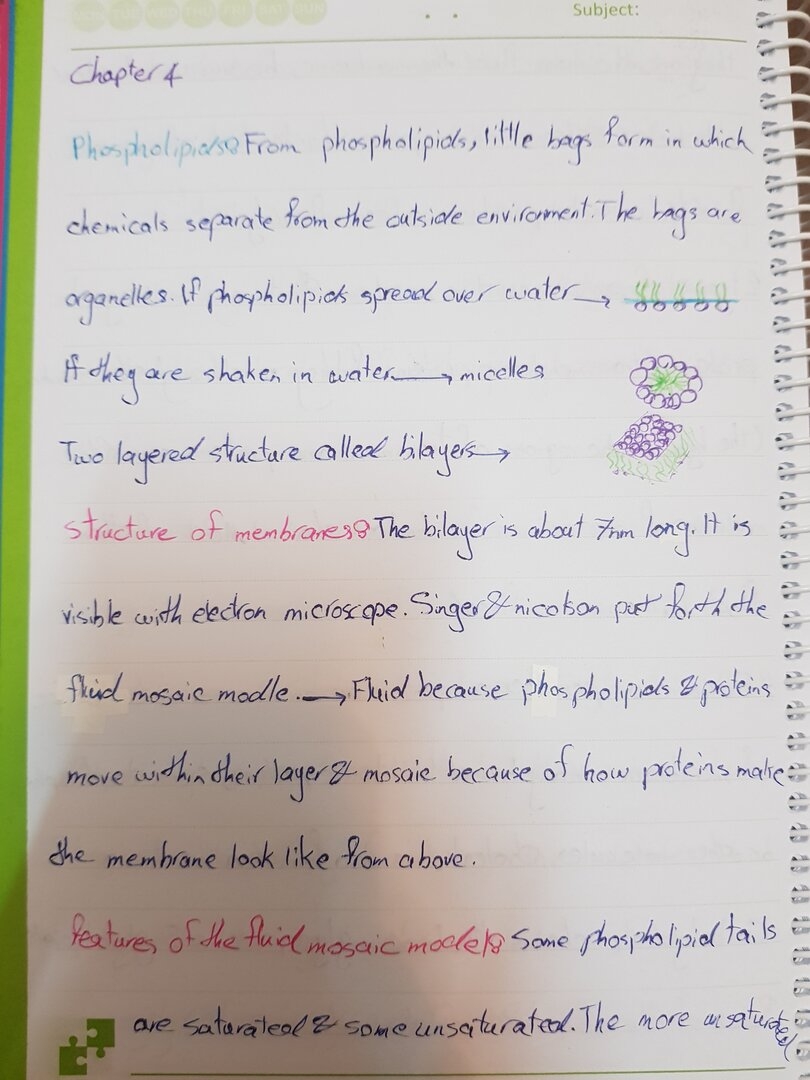 MON TUE WED THU FRI SAT SUN
Subject:
Chapter 4
Phospholipids: From phospholipids, little bags form in which
chemicals separate from the outside environment. The bags are
organelles. If phospholipids spread over water →
If they are shaken in water → micelles
Two layered structure called bilayers →
Structure of membranes: The bilayer is about 7nm long. It is
visible with electron microscope. Singer & nicolson put forth the
fluid mosaic modle. → Fluid because phospholipids & proteins
move within their layer & mosaic because of how proteins make
the membrane look like from above.
Features of the fluid mosaic model: Some phospholipid tails
are saturated & some unsaturated. The more unsaturated